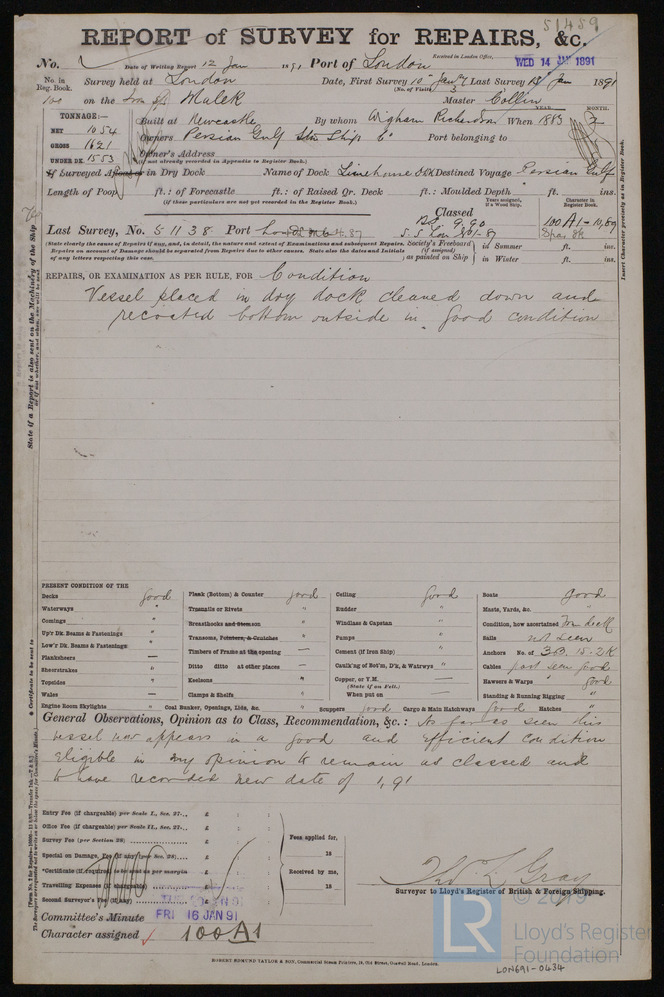 51459
REPORT of SURVEY for REPAIRS, &c.
No. Date of Writing Report 12 Jan 1891 Port of London Received in London Office, WED 14 JAN 1891
No. in Reg. Book. Survey held at London Date, First Survey 10 Jan Last Survey Jan 1891
(No. of Visits 3)
on the Malek Master Collin
TONNAGE:— YEAR. MONTH.
NET 1054 Built at Newcastle By whom Wigham Richardson When 1883 7
GROSS 1621 Owners Persian Gulf Stm Ship Co Port belonging to
UNDER DK. 1553 Owner's Address
(If not already recorded in Appendix to Register Book.)
If Surveyed Afloat or in Dry Dock Name of Dock Limehouse Destined Voyage Persian Gulf
Length of Poop ft.: of Forecastle ft.: of Raised Qr. Deck ft.: Moulded Depth ft. ins.
(If these particulars are not yet recorded in the Register Book.)
Classed Years assigned, if a Wood Ship. Character in Register Book.
Last Survey, No. 51138 Port 9.90 100 A1-10,89
S.S. Lon Spar dk
(State clearly the cause of Repairs if any, and, in detail, the nature and extent of Examinations and subsequent Repairs.
Repairs on account of Damage should be separated from Repairs due to other causes. State also the dates and initials
of any letters respecting this case.
Society's Freeboard (if assigned) as painted on Ship in Summer ft. ins.
in Winter ft. ins.
REPAIRS, OR EXAMINATION AS PER RULE, FOR Condition
Vessel placed in dry dock cleaned down and
recoated bottom outside in good condition
State if a Report is also sent on the Machinery of the Ship
Insert Character precisely as in Register Book.
PRESENT CONDITION OF THE
Decks good
Waterways "
Comings "
Up'r Dk. Beams & Fastenings "
Low'r Dk. Beams & Fastenings "
Planksheers —
Sheerstrakes "
Topsides "
Wales —
Engine Room Skylights "
Plank (Bottom) & Counter good
Treenails or Rivets "
Breasthooks and Stemson "
Transoms, Pointers, & Crutches "
Timbers of Frame at the opening —
Ditto ditto at other places —
Keelsons "
Clamps & Shelfs —
Coal Bunker, Openings, Lids, &c. "
Ceiling good
Rudder "
Windlass & Capstan "
Pumps "
Cement (if Iron Ship) "
Caulk'ng of Bot'm, D'k, & Watrways "
Copper, or Y.M. —
(State if on Felt.)
When put on —
Scuppers good Cargo & Main Hatchways good Hatches "
Boats good
Masts, Yards, &c. "
Condition, how ascertained From deck
Sails not seen
Anchors No. of 3B. 1S. 2K
Cables part seen good
Hawsers & Warps good
Standing & Running Rigging "
Certificate to be sent to
General Observations, Opinion as to Class, Recommendation, &c.: As far as seen this
vessel now appears in a good and efficient condition
Eligible in my opinion to remain as classed and
to have recorded new date of 1,91
Entry Fee (if chargeable) per Scale I., Sec. 27... £ : :
Office Fee (if chargeable) per Scale II., Sec. 27... £ : :
Survey Fee (per Section 28) £ : :
Special on Damage, Fee (if any) (per Sec. 28) £ : :
*Certificate (if required) to be sent as per margin £ : :
Travelling Expenses (if chargeable) £ : :
Second Surveyor's Fee (if any) £ : :
Fees applied for,
18
Received by me,
18
Thos L Gray
Surveyor to Lloyd's Register of British & Foreign Shipping.
Committee's Minute FRI 16 JAN 91
Character assigned 100 A1
© 2019
LR
Lloyd's Register
Foundation
ROBERT EDMUND TAYLOR & SON, Commercial Steam Printers, 19, Old Street, Goswell Road, London.
LON691-0434